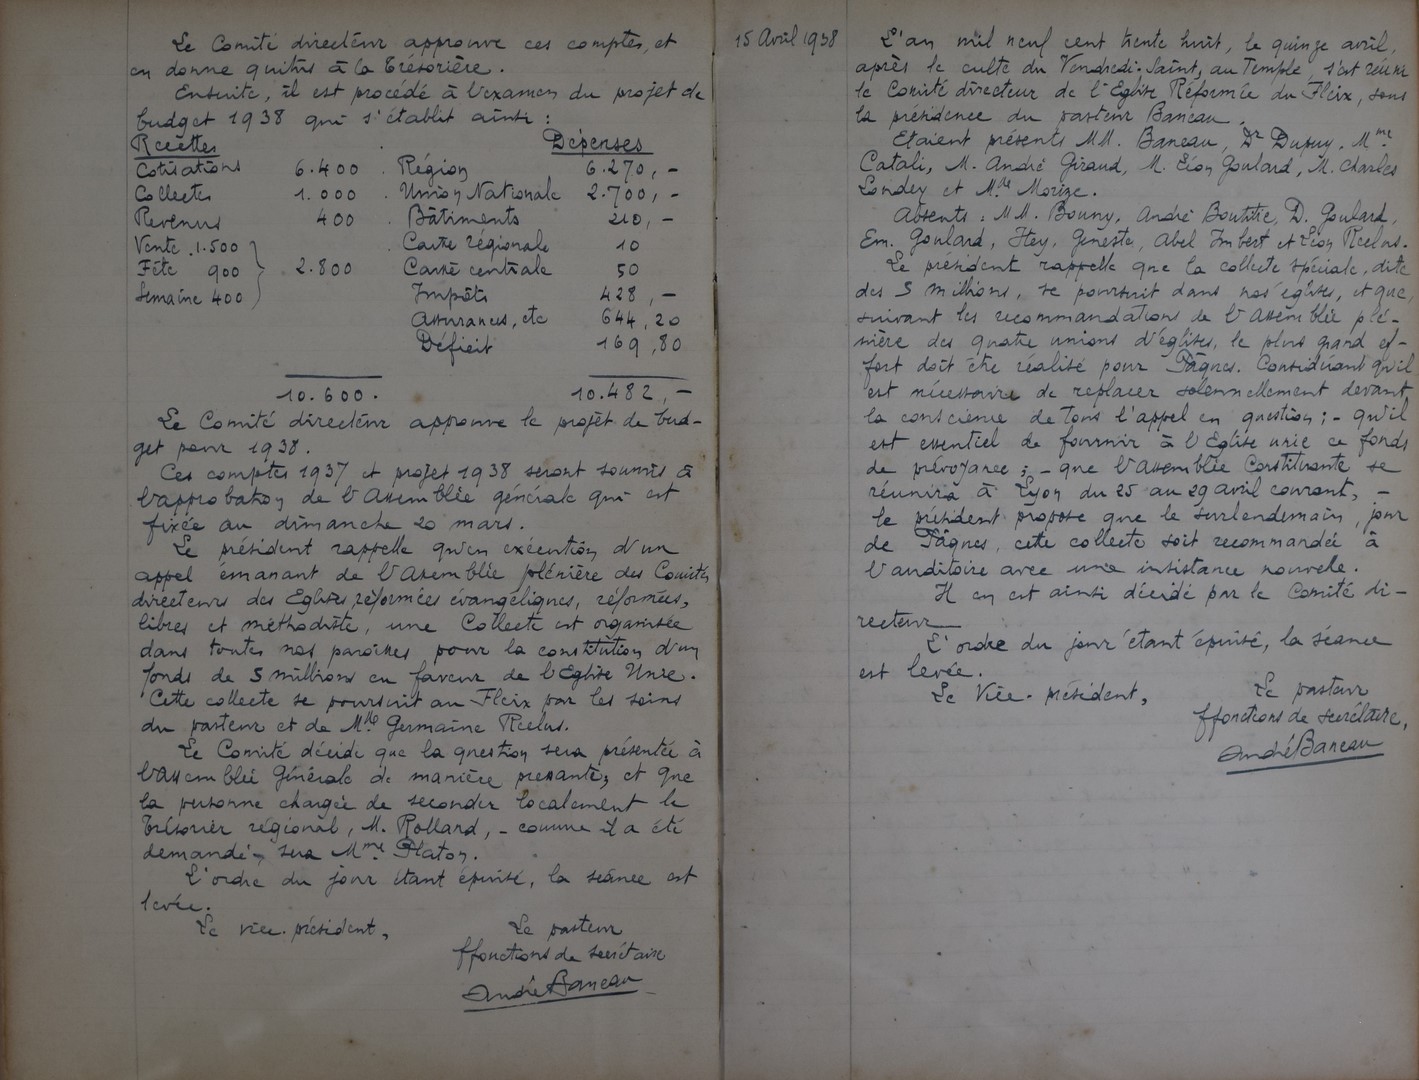 Le Comité directeur approuve ces comptes, et
en donne quitus à la trésorière.
Ensuite, il est procédé à l'examen du projet de
budget 1938 qui s'établit ainsi :
Recettes Dépenses
Cotisations 6.400 . Région 6.270,-
Collectes 1.000 . Union Nationale 2.700,-
Revenus 400 . Bâtiments 210,-
Vente . 1.500 . Caisse régionale 10
Fête 900 2.800 Caisse centrale 50
Semaine 400 Impôts 428,-
Assurances, etc 644,20
Déficit 169,80
10.600. 10.482,-
Le Comité directeur approuve le projet de bud-
get pour 1938.
Ces comptes 1937 et projet 1938 seront soumis à
l'approbation de l'Assemblée générale qui est
fixée au dimanche 20 mars.
Le président rappelle qu'en exécution d'un
appel émanant de l'Assemblée plénière des Comités
directeurs des Eglises réformées évangéliques, réformées,
libres et méthodiste, une Collecte est organisée
dans toutes nos paroisses pour la constitution d'un
fonds de 5 millions en faveur de l'Eglise Unie.
Cette collecte se poursuit au Fleix par les soins
du pasteur et de Mlle Germaine Reclus.
Le Comité décide que la question sera présentée à
l'Assemblée Générale de manière pressante, et que
la personne chargée de seconder localement le
trésorier régional, M. Rollard, - comme il a été
demandé -, sera Mme Platon.
L'ordre du jour étant épuisé, la séance est
levée.
Le vice-président, Le pasteur
ffonctions de secrétaire
André Baneau
15 Avril 1938
L'an mil neuf cent trente huit, le quinze avril,
après le culte du Vendredi-Saint, au Temple, s'est réuni
le Comité directeur de l'Eglise Réformée du Fleix, sous
la présidence du pasteur Baneau.
Etaient présents MM. Baneau, Dr Dupuy, Mme
Catali, M. André Giraud, M. Léon Goulard, M. Charles
Londey et Mlle Morize.
Absents : MM. Bouny, André Boutitie, D. Goulard,
Em. Goulard, Hey, Geneste, Abel Imbert et Léon Reclus.
Le président rappelle que la collecte spéciale, dite
des 5 millions, se poursuit dans nos églises, et que,
suivant les recommandations de l'Assemblée plé-
nière des quatre unions d'églises, le plus grand ef-
fort doit être réalisé pour Pâques. Considérant qu'il
est nécessaire de replacer solennellement devant
la conscience de tous l'appel en question ; - qu'il
est essentiel de fournir à l'Eglise unie ce fonds
de prévoyance ; - que l'Assemblée Constituante se
réunira à Lyon du 25 au 29 avril courant, -
le président propose que le surlendemain, jour
de Pâques, cette collecte soit recommandée à
l'auditoire avec une insistance nouvelle.
Il en est ainsi décidé par le Comité di-
recteur
L'ordre du jour étant épuisé, la séance
est levée.
Le Vice-président, Le pasteur
ffonctions de secrétaire,
André Baneau